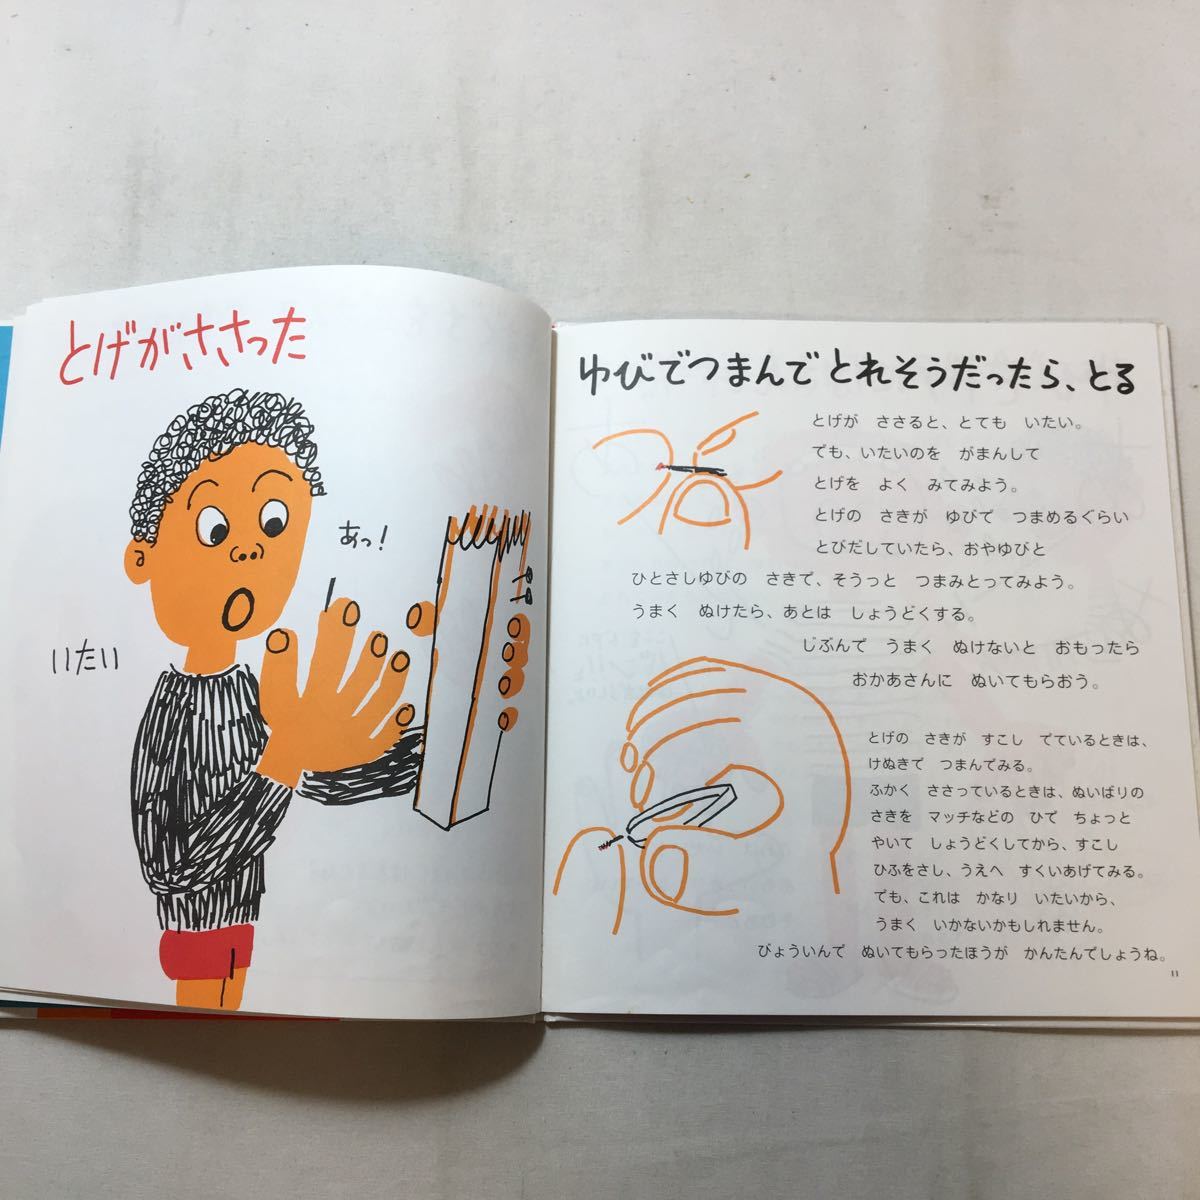 とげがささった
あっ!
いたい
ゆびでつまんでとれそうだったら、とる
とげが ささると、とても いたい。
でも、いたいのを がまんして
とげを よく みてみよう。
とげの さきが ゆびで つまめるぐらい
とびだしていたら、おやゆびと
ひとさしゆびの さきで、そうっと つまみとってみよう。
うまく ぬけたら、あとは しょうどくする。
じぶんで うまく ぬけないと おもったら
おかあさんに ぬいてもらおう。
とげの さきが すこし でているときは、
けぬきで つまんでみる。
ふかく ささっているときは、ぬいばりの
さきを マッチなどの ひで ちょっと
やいて しょうどくしてから、すこし
ひふをさし、うえへ すくいあげてみる。
でも、これは かなり いたいから、
うまく いかないかもしれません。
びょういんで ぬいてもらったほうが かんたんでしょうね。
11